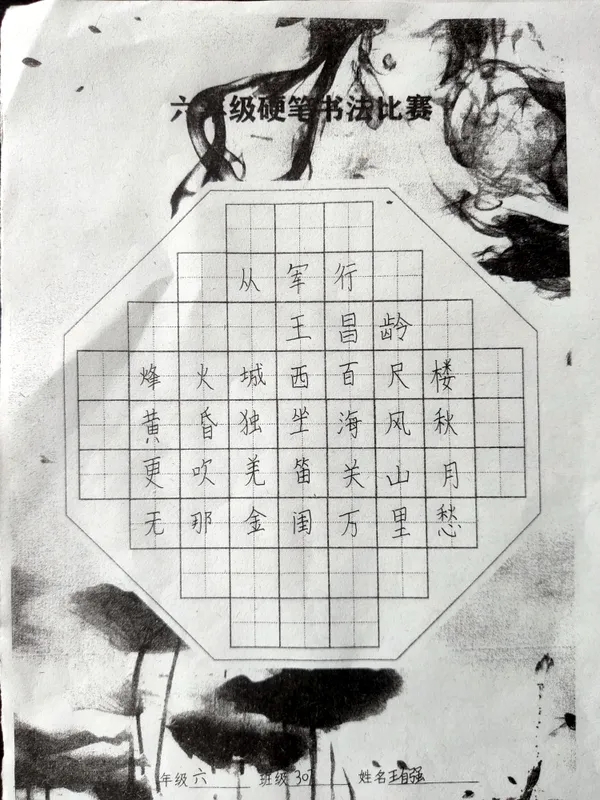 六年级硬笔书法比赛
从军行
王昌龄
烽火城西百尺楼
黄昏独坐海风秋
更吹羌笛关山月
无那金闺万里愁
年级 六 班级 30 姓名 王自强